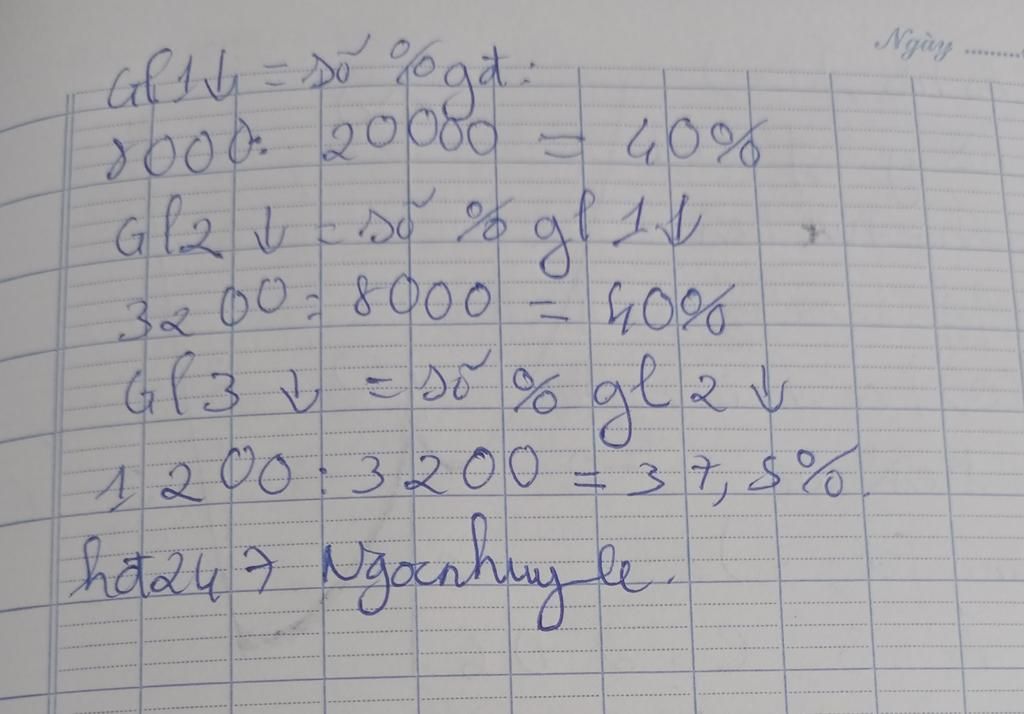 Ngày ........
Gl1↓ = số % gđ:
8000: 20000 = 40%
Gl2 ↓ = số % gl 1↓
3200 : 8000 = 40%
Gl3 ↓ = số % gl 2 ↓
1200 : 3200 = 37,5%.
hđ247 Ngocnhuy_le.